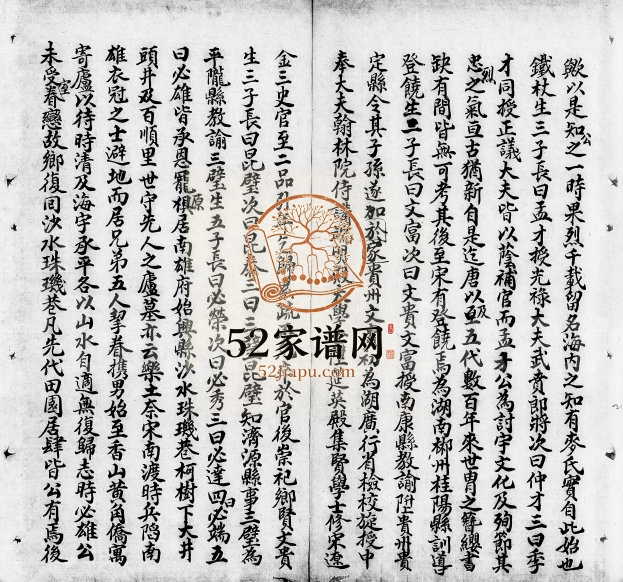 歟以是知公之一時果烈千載留名海內之知有麥氏實自此始也
鐵杖生三子長曰孟才授光祿大夫武賁郎將次曰仲才三曰季
才同授正議大夫皆以蔭補官而孟才公為討宇文化及殉節其
忠烈之氣亘古猶新自是迄唐以及至五代數百年來世冑之簪纓書
缺有間皆無可考其後至宋有登饒焉為湖南郴州桂陽縣訓導
登饒生二子長曰文富次曰文貴文富授南康縣教諭陞貴州貴
定縣令其子孫遂加於家貴州文貴初為湖廣行省檢校旋授中
奉大夫翰林院侍講 延英殿集賢學士修宋遼
金三史官至二品 歸 疏 於官後崇祀鄉賢文貴
生三子長曰昆璧次曰昆 三曰三璧昆璧知濟源縣事三璧為
平隴縣教諭三璧生五子長曰必榮次曰必秀三曰必達四曰必端五
曰必雄皆承恩寵俱居南雄府始興縣沙水珠璣巷柯樹下大井
頭井及百順里世守先人之廬墓亦云樂土奈宋南渡時兵陷南
雄衣冠之士避地而居兄弟五人挈眷携男始至香山黃角僑寓
寄廬以待時清及海宇承平各以山水自適無復歸志時必雄公
未受室眷戀故鄉復回沙水珠璣巷凡先代田園居肆皆公有焉後
52家谱网
52jiapu.com